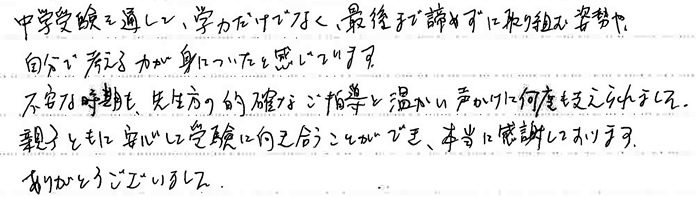 中学受験を通して、学力だけでなく、最後まで諦めずに取り組む姿勢や、
自分で考える力が身についたと感じています。
不安な時期も、先生方の的確なご指導と温かい声かけに何度も支えられました。
親子ともに安心して受験に向き合うことができ、本当に感謝しております。
ありがとうございました。